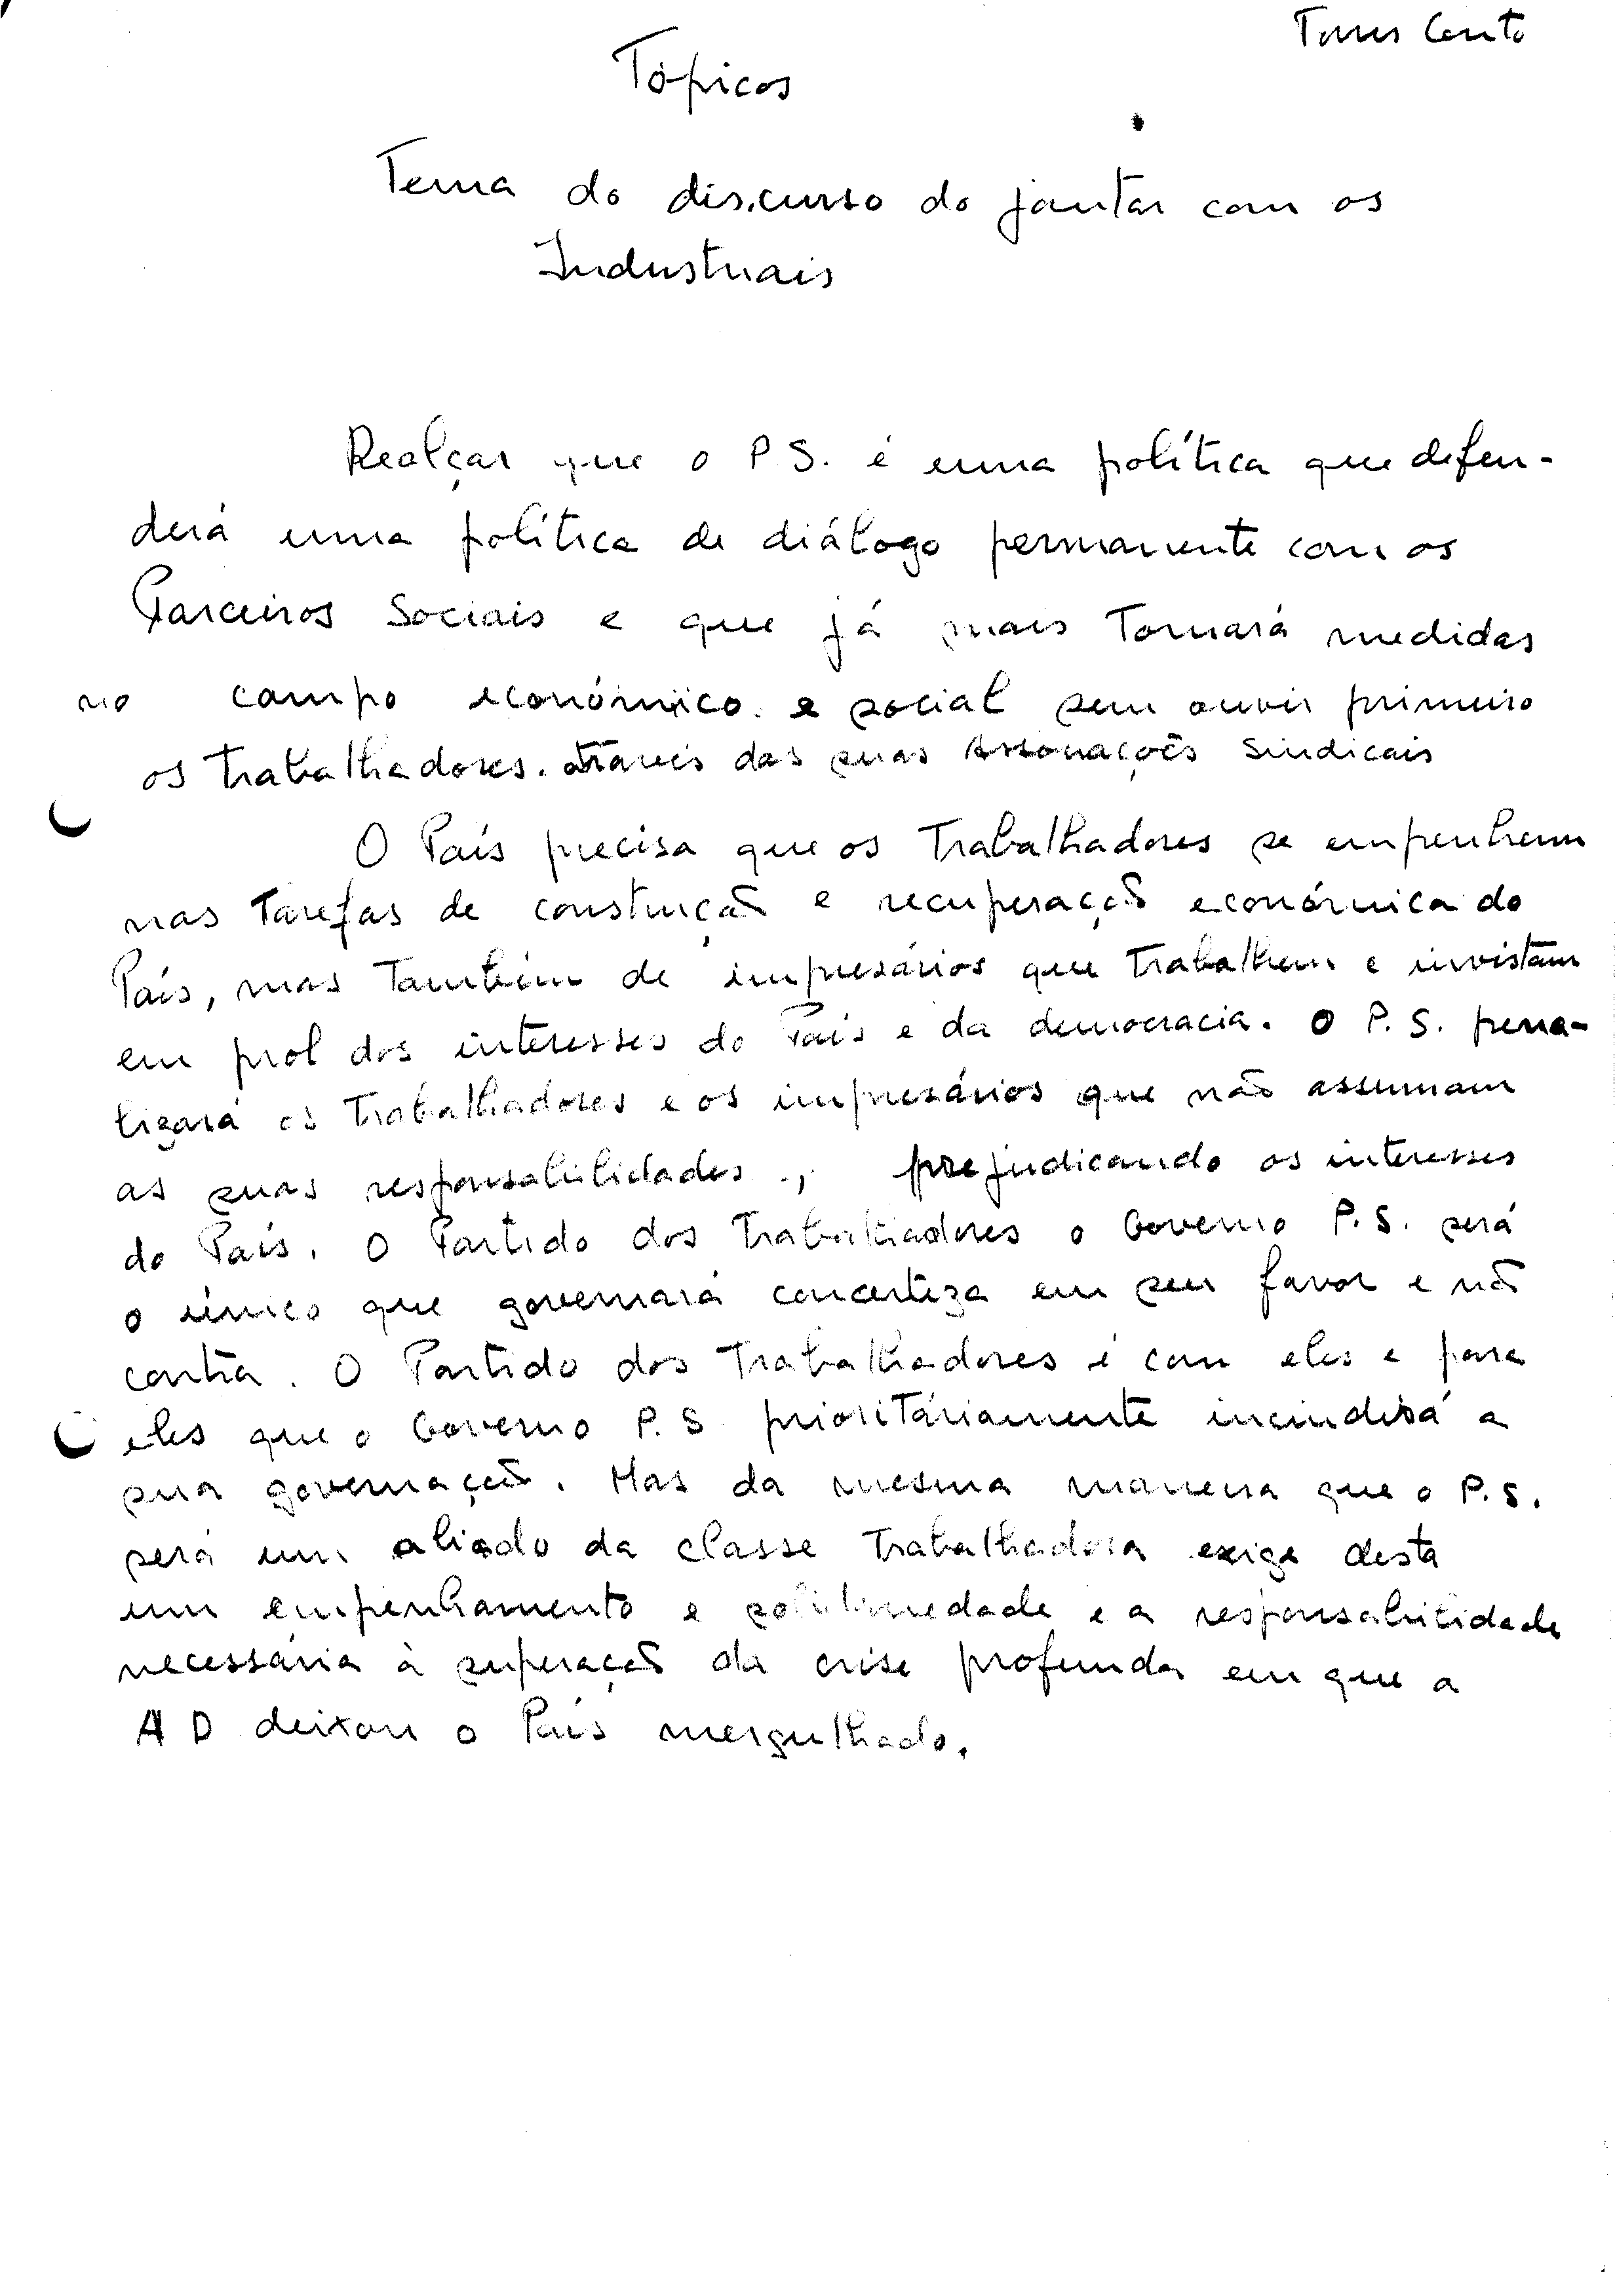 Torres Couto
Tópicos
Tema do discurso do jantar com os
Industriais
Realçar que o P S. é uma política que defen-
derá uma política de diálogo permanente com os
Parceiros Sociais e que já mais Tomará medidas
no campo económico e social sem ouvir primeiro
os Trabalhadores. através das suas Associações Sindicais
O País precisa que os Trabalhadores se empenhem
nas Tarefas de construção e recuperação económica do
País, mas Também de impresários que Trabalhem e invistam
em prol dos interesses do País e da democracia. O P. S. pena-
lizará os Trabalhadores e os impresários que não assumam
as suas responsabilidades., prejudicando os interesses
do País. O Partido dos Trabalhadores o Governo P.S. será
o único que governará concerteza em seu favor e não
contra. O Partido dos Trabalhadores é com eles e para
eles que o Governo P. S prioritáriamente incindirá a
sua governação. Mas da mesma maneira que o P.S.
será um aliado da classe Trabalhadora exige desta
um empenhamento e e a responsabilidade
necessária à superação da crise profunda em que a
A D deixou o País mergulhado.